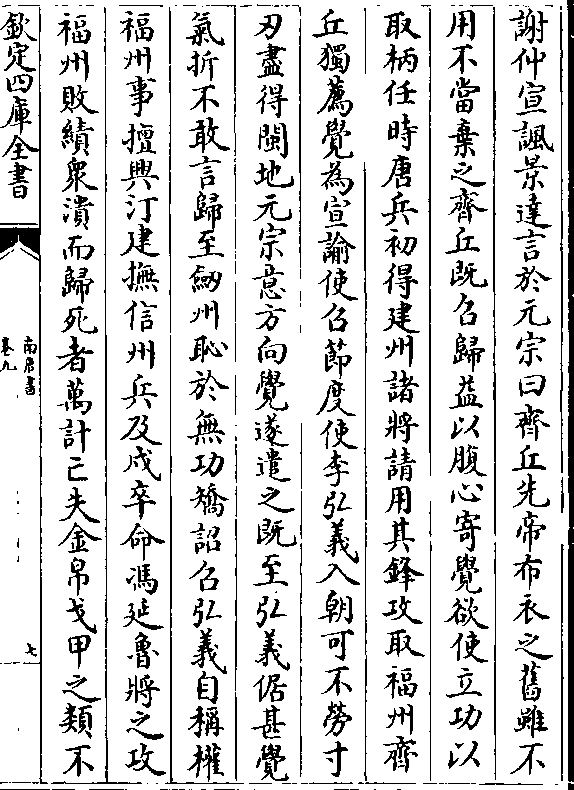 謝仲宣諷景達言於元宗曰齊丘先帝布衣之舊雖不
用不當棄之齊丘既召歸益以腹心寄覺欲使立功以
取柄任時唐兵初得建州諸將請用其鋒攻取福州齊
丘獨薦覺為宣諭使召節度使李弘義入朝可不勞寸
刃盡得閩地元宗意方向覺遂遣之既至弘義倨甚覺
氣折不敢言歸至劒州恥於無功矯詔召弘義自稱權
福州事擅興汀建撫信州兵及戍卒命馮延魯將之攻
福州敗績衆潰而歸死者萬計亡失金帛戈甲之類不
欽定四庫全書
南唐書
卷九
七